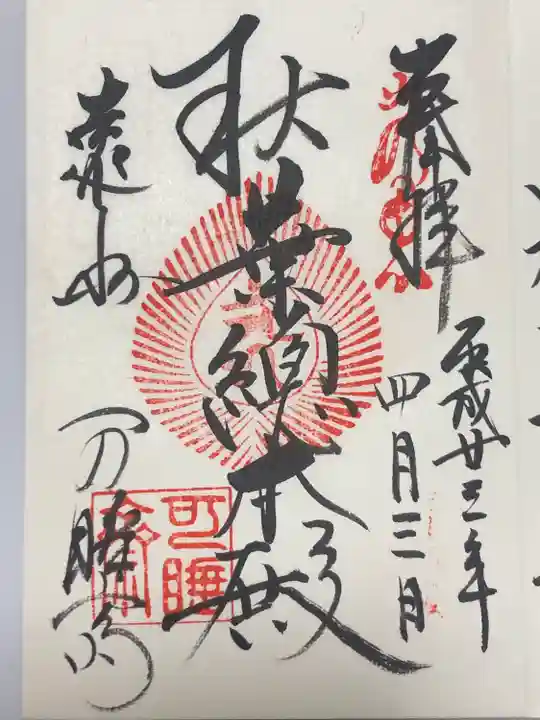 奉拝
平成廿三年
四月三日
秋葉總本殿
遠州
可睡斎
可睡齋